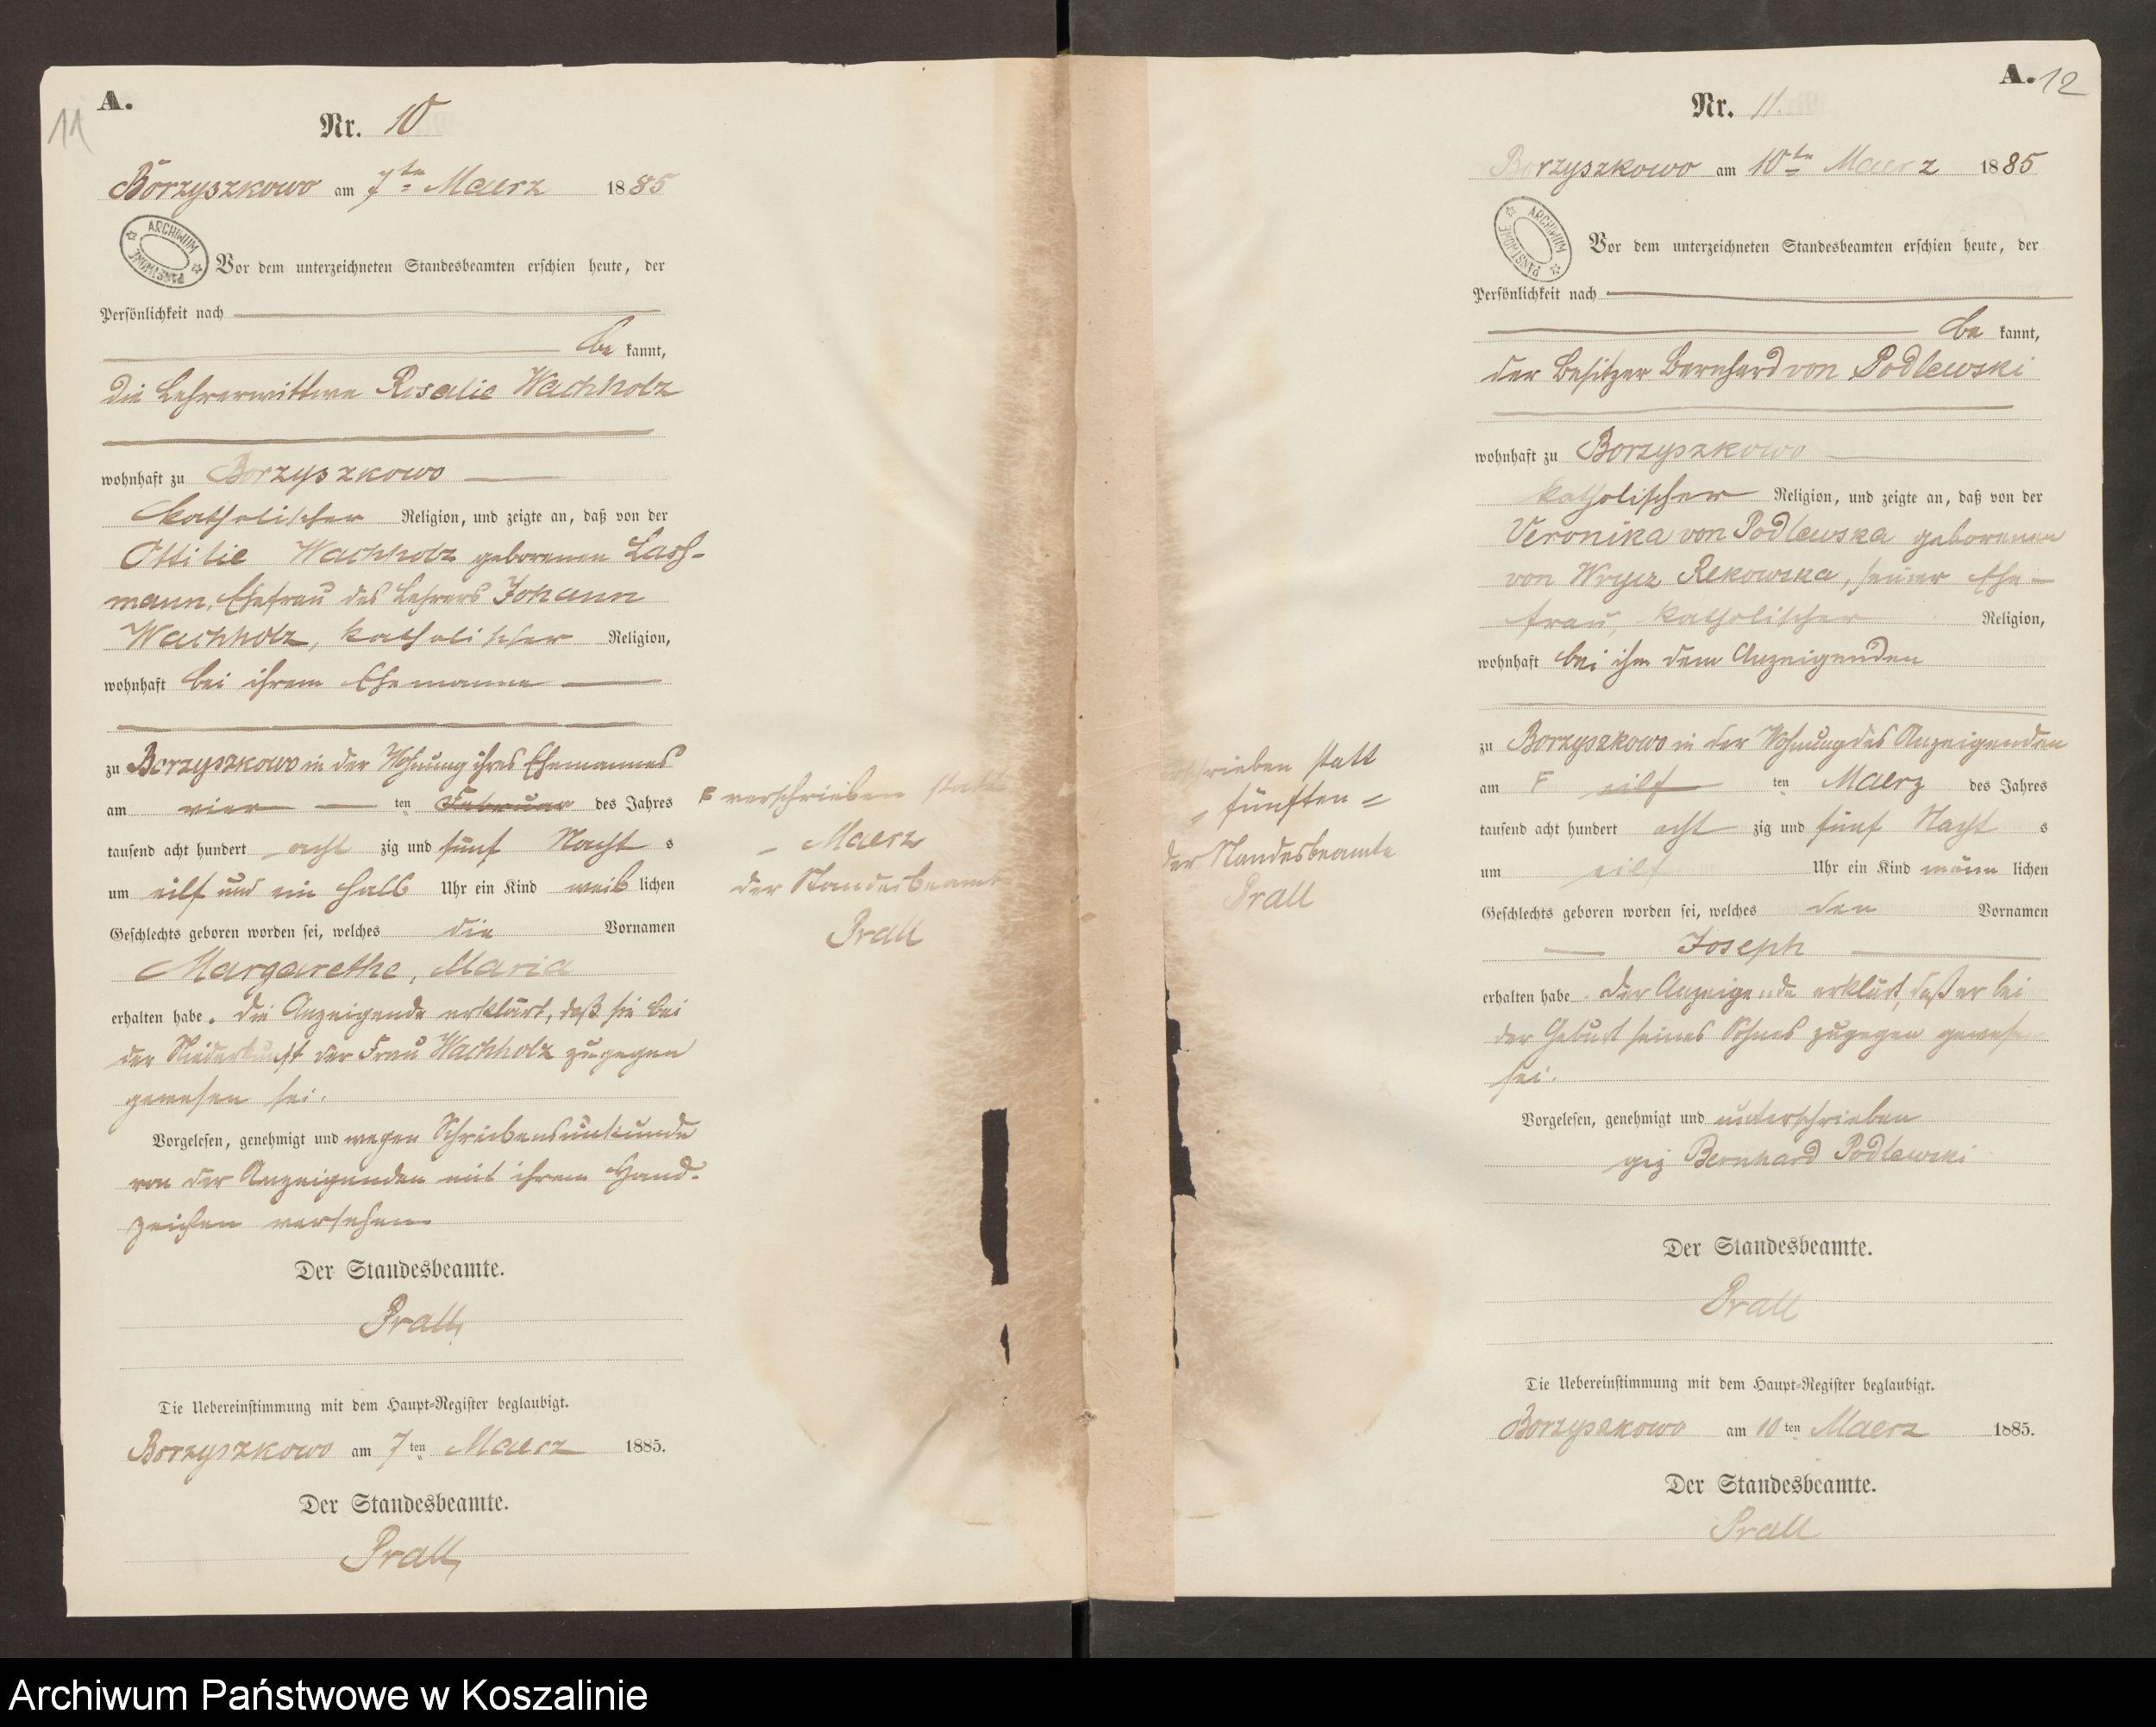 11
A.
Nr. 10
Borzyszkowo am 7ten Maerz 1885
ARCHIWUM PAŃSTWOWE
Vor dem unterzeichneten Standesbeamten erschien heute, der
Persönlichkeit nach
be kannt,
die Lehrerwittwe Rosalie Wachholz
wohnhaft zu Borzyszkowo
katholischer Religion, und zeigte an, daß von der
Ottilie Wachholz geborenen Lash-
mann, Ehefrau des Lehrers Johann
Wachholz, katholischer Religion,
wohnhaft bei ihrem Ehemanne
zu Borzyszkowo in der Wohnung ihres Ehemannes
am vier ten Februar des Jahres
tausend acht hundert acht zig und fünf Nacht s
um eilf und ein halb Uhr ein Kind weib lichen
Geschlechts geboren worden sei, welches die Vornamen
Margarethe, Maria
erhalten habe. Die Anzeigende erklärt, daß sie bei
der Niederkunft der Frau Wachholz zugegen
gewesen sei.
Vorgelesen, genehmigt und wegen Schreibensunkunde
von der Anzeigenden mit ihrem Hand-
zeichen versehen
Der Standesbeamte.
Prall
Die Uebereinstimmung mit dem Haupt-Register beglaubigt.
Borzyszkowo am 7ten Maerz 1885.
Der Standesbeamte.
Prall
F verschrieben statt
- Maerz
der Standesbeamte
Prall
A. 12
Nr. 11.
Borzyszkowo am 10ten Maerz 1885
ARCHIWUM PAŃSTWOWE
Vor dem unterzeichneten Standesbeamten erschien heute, der
Persönlichkeit nach
be kannt,
der Besitzer Bernhard von Podlewski
wohnhaft zu Borzyszkowo
katholischer Religion, und zeigte an, daß von der
Veronika von Podlewska geborenen
von Wrycz Rekowska, seiner Ehe-
frau, katholischer Religion,
wohnhaft bei ihm dem Anzeigenden
zu Borzyszkowo in der Wohnung des Anzeigenden
am F eilf ten Maerz des Jahres
tausend acht hundert acht zig und fünf Nacht s
um eilf Uhr ein Kind männ lichen
Geschlechts geboren worden sei, welches den Vornamen
Joseph
erhalten habe. Der Anzeigende erklärt, daß er bei
der Geburt seines Sohnes zugegen gewesen
sei.
Vorgelesen, genehmigt und unterschrieben
gez Bernhard Podlewski
Der Standesbeamte.
Prall
Die Uebereinstimmung mit dem Haupt-Register beglaubigt.
Borzyszkowo am 10ten Maerz 1885.
Der Standesbeamte.
Prall
schrieben statt
= fünften =
der Standesbeamte
Prall
Archiwum Państwowe w Koszalinie